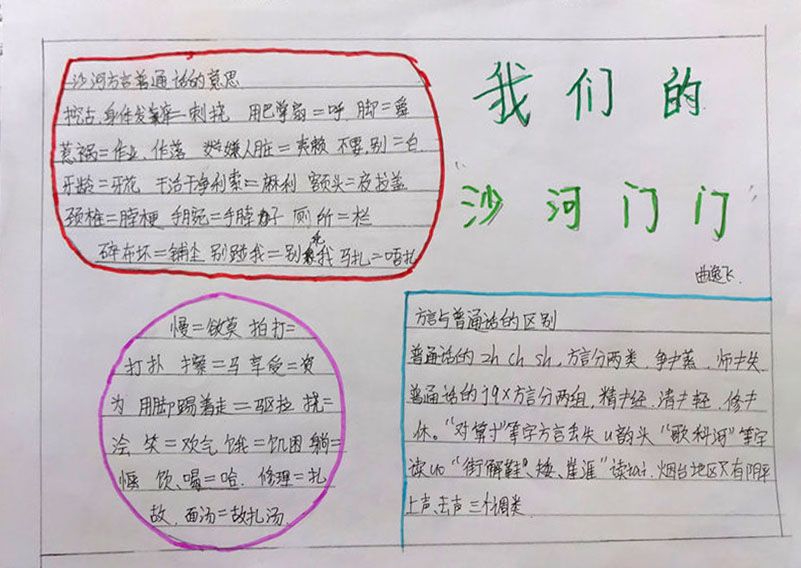 我们的
沙河门门
曲逸飞
沙河方言普通话的意思
挖古、身体发痒=刺挠 用巴掌扇=呼 脚=
惹祸=作业、作落 嫌人脏= 不要,别=白
牙龄=牙花 干活干净利索=麻利 额头=夜拉盖
颈椎=脖梗 手腕=手脖子 厕所=栏
碎布坏=铺尘 别踏我=别我 马扎=唔扎
慢=敛莫 拍打=
打扑 擦=马 享受=资
为 用脚踢着走=驱拉 挠=
浍 笑=欢气 饿=饥困 躺=
饮、喝=哈 修理=扎
故 面汤=故扎汤
方言与普通话的区别
普通话的 zh ch sh,方言分两类,争≠蒸,师≠失
普通话的 j q x 方言分两组,精≠经,清≠轻,修≠
休。"对算寸"等字方言丢失 u 韵头 "歌科河"等字
读 uo "街解鞋、矮、崖涯"读 iai.烟台地区只有阴平
上声、去声 三个调类